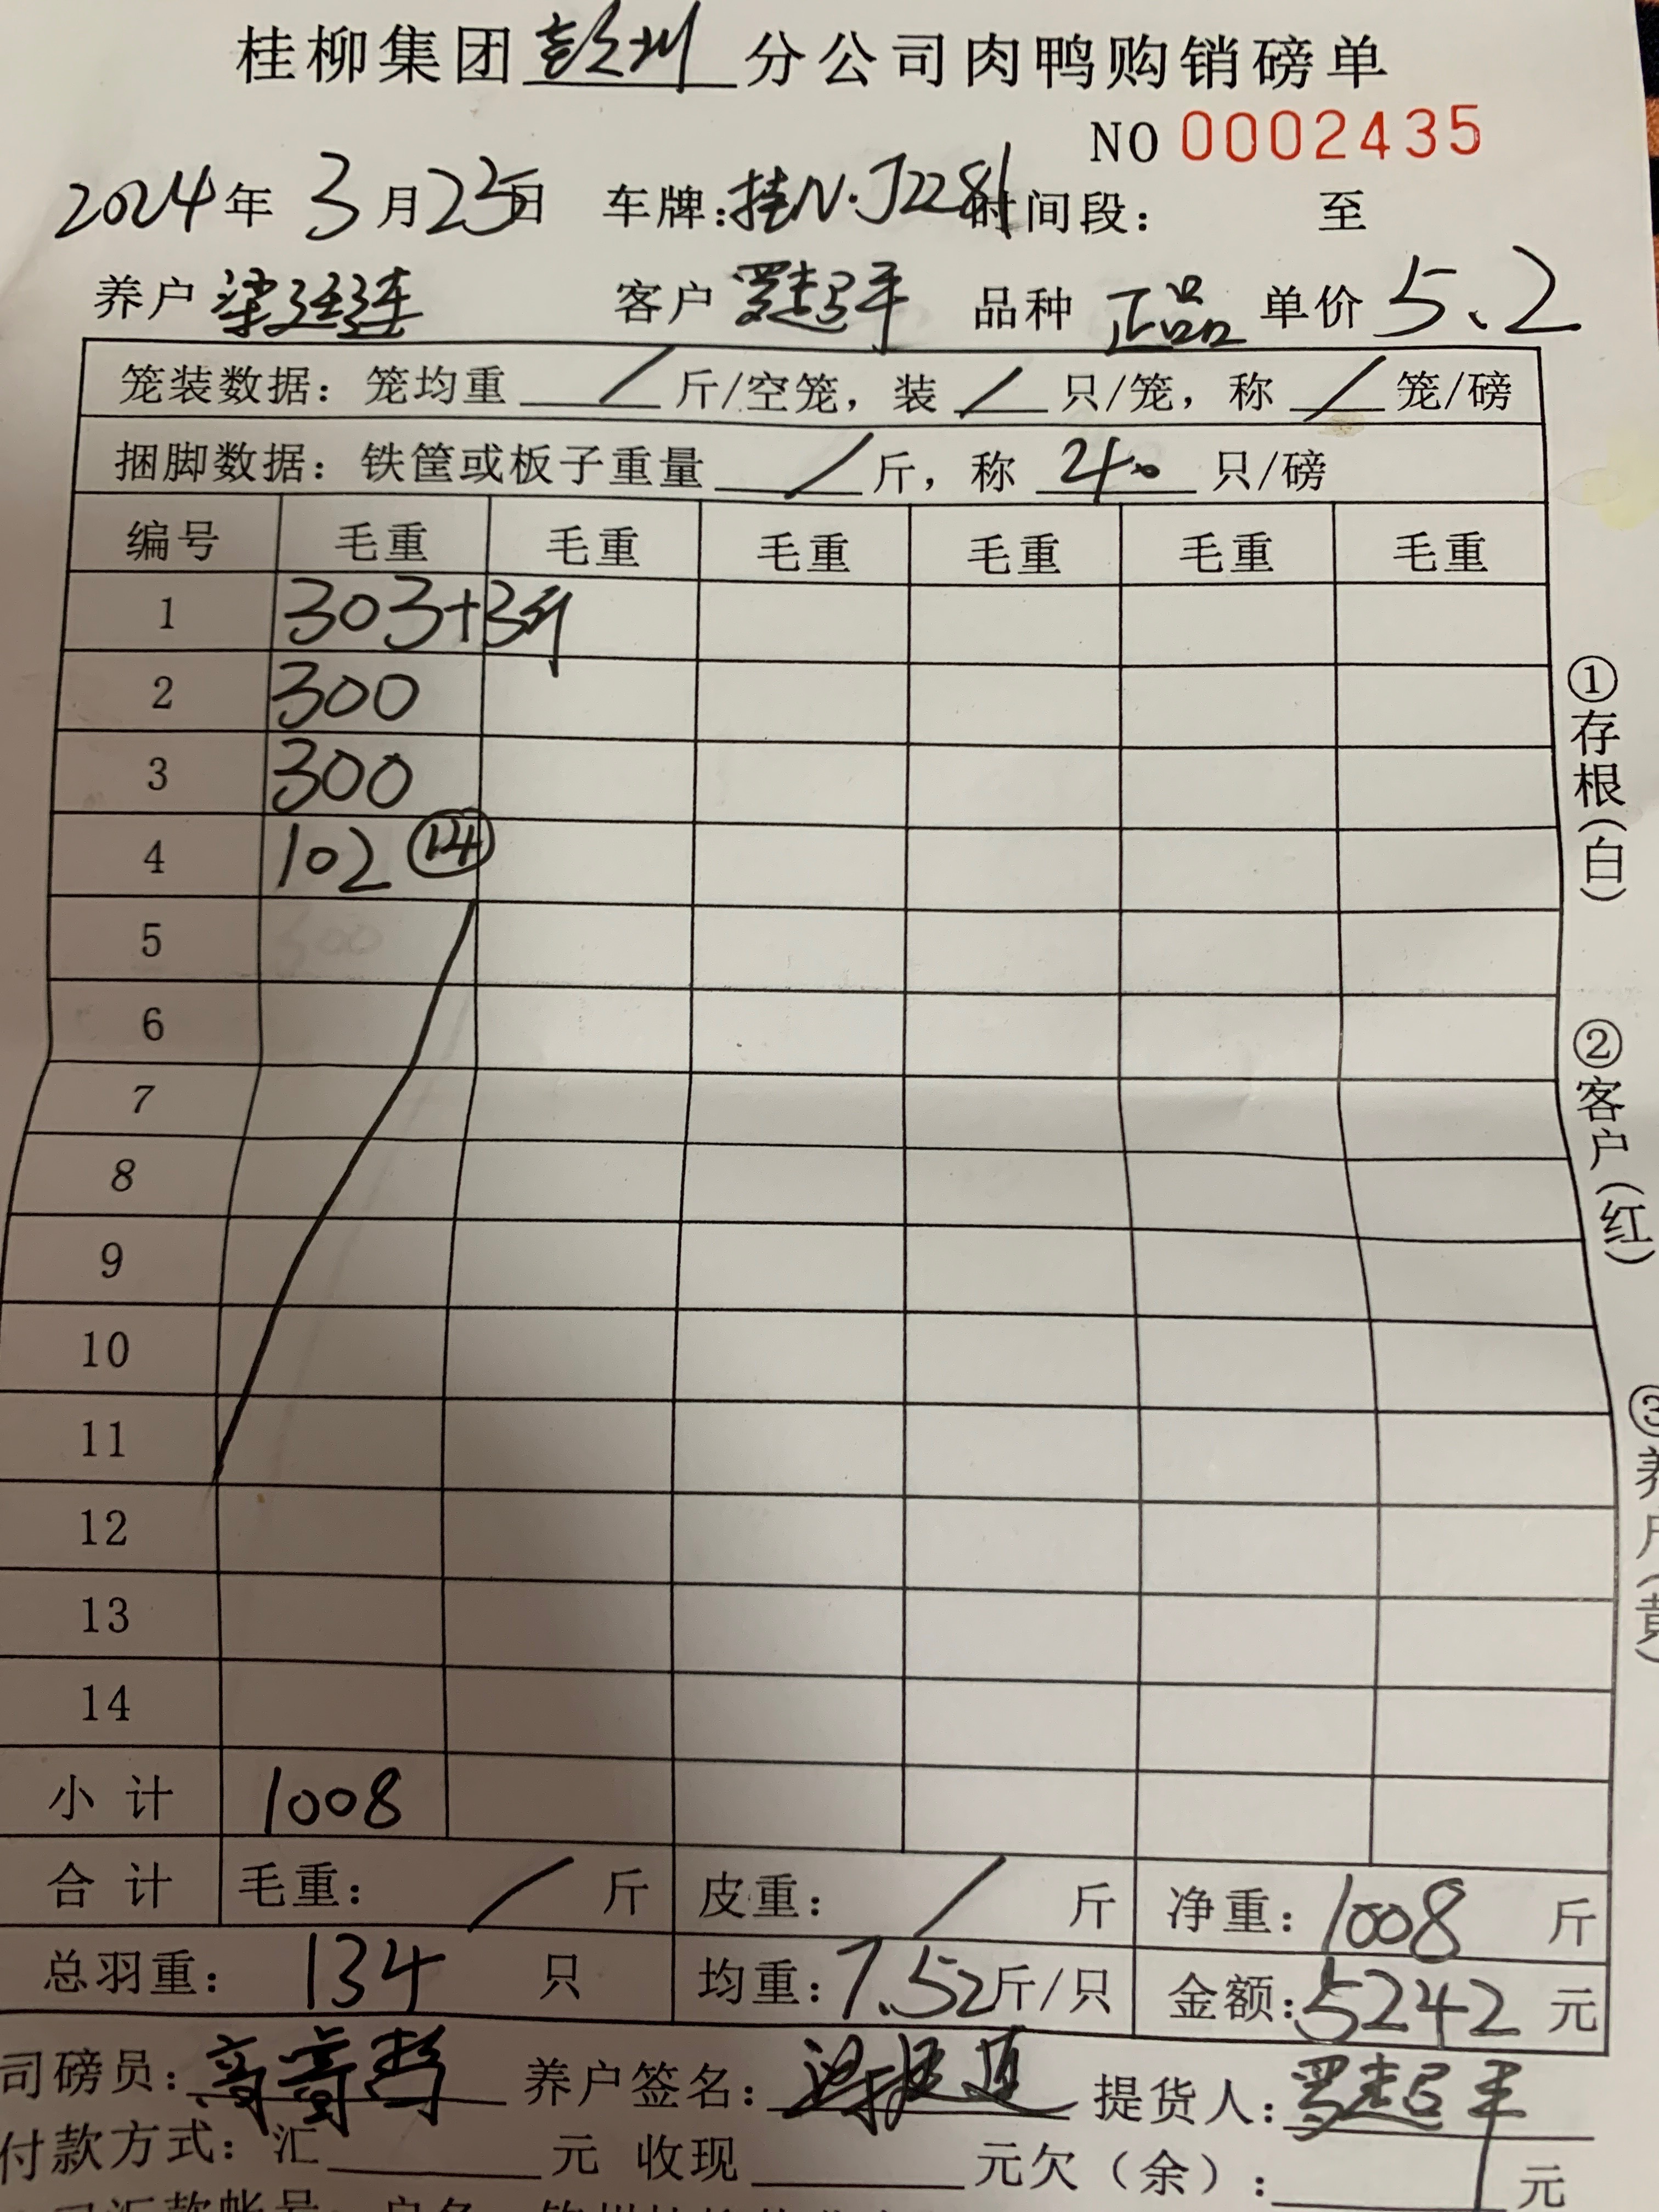 桂柳集团彭州分公司肉鸭购销磅单
NO 0002435
2024年 3月23日 车牌:桂N·J2281 时间段: 至
养户 梁廷连 客户 罗超平 品种 正品 单价 5.2
笼装数据: 笼均重 / 斤/空笼, 装 / 只/笼, 称 / 笼/磅
捆脚数据: 铁筐或板子重量 / 斤, 称 40 只/磅
编号 毛重 毛重 毛重 毛重 毛重 毛重
1 303+3斤
2 300
3 300
4 102 ⑭
5
6
7
8
9
10
11
12
13
14
小计 1008
合计 毛重: / 斤 皮重: / 斤 净重: 1008 斤
总羽重: 134 只 均重: 7.52斤/只 金额: 5242 元
司磅员: 养户签名: 梁廷连 提货人: 罗超平
付款方式: 汇 元 收现 元欠(余): 元
①存根(白)
②客户(红)
③养户(黄)